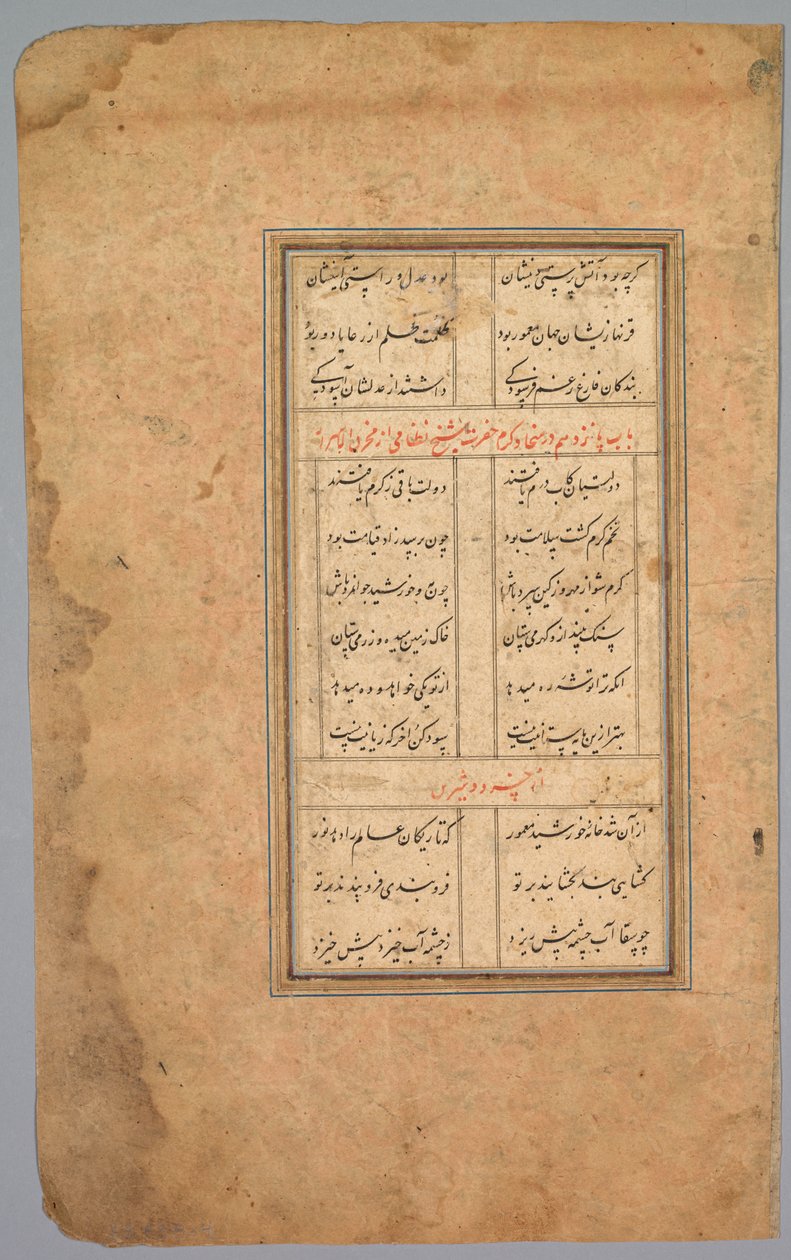 کرچه بود آتش پرستی دینشان بود عدل و راستی آیینشان
قرنها زیشان جهان معمور بود ظلمت ظلم از رعایا دور بود
بندکان فارغ ز غم فرسودکی داشتند از عدلشان آسودکی
باب پانزدهم در سخا و کرم حضرت شیخ نظامی از مخزن الاسرار
دولتیان کاب درم یافتند دولت باقی ز کرم یافتند
تخم کرم کشت سلامت بود چون برسد زاد قیامت بود
کرم شو از مهر و ز کین سرد باش چون مه و خورشید جوانمرد باش
سنک بینداز و کهر می ستان خاک زمین میده و زر می ستان
انکه ترا توشه ره میدهد از تو یکی خواهد و ده میدهد
بهتر ازین مایه ستانیت نیست سود کن اخر که زیانیت نیست
از خسرو و شیرین
از آن شد خانه خورشید معمور که تاریکان عالم را دهد نور
کشایی بند بکشایند بر تو فرو بندی فرو بندند بر تو
چو سقا آب چشمه پیش ریزد ز چشمه آب خیزد پیش خیزد